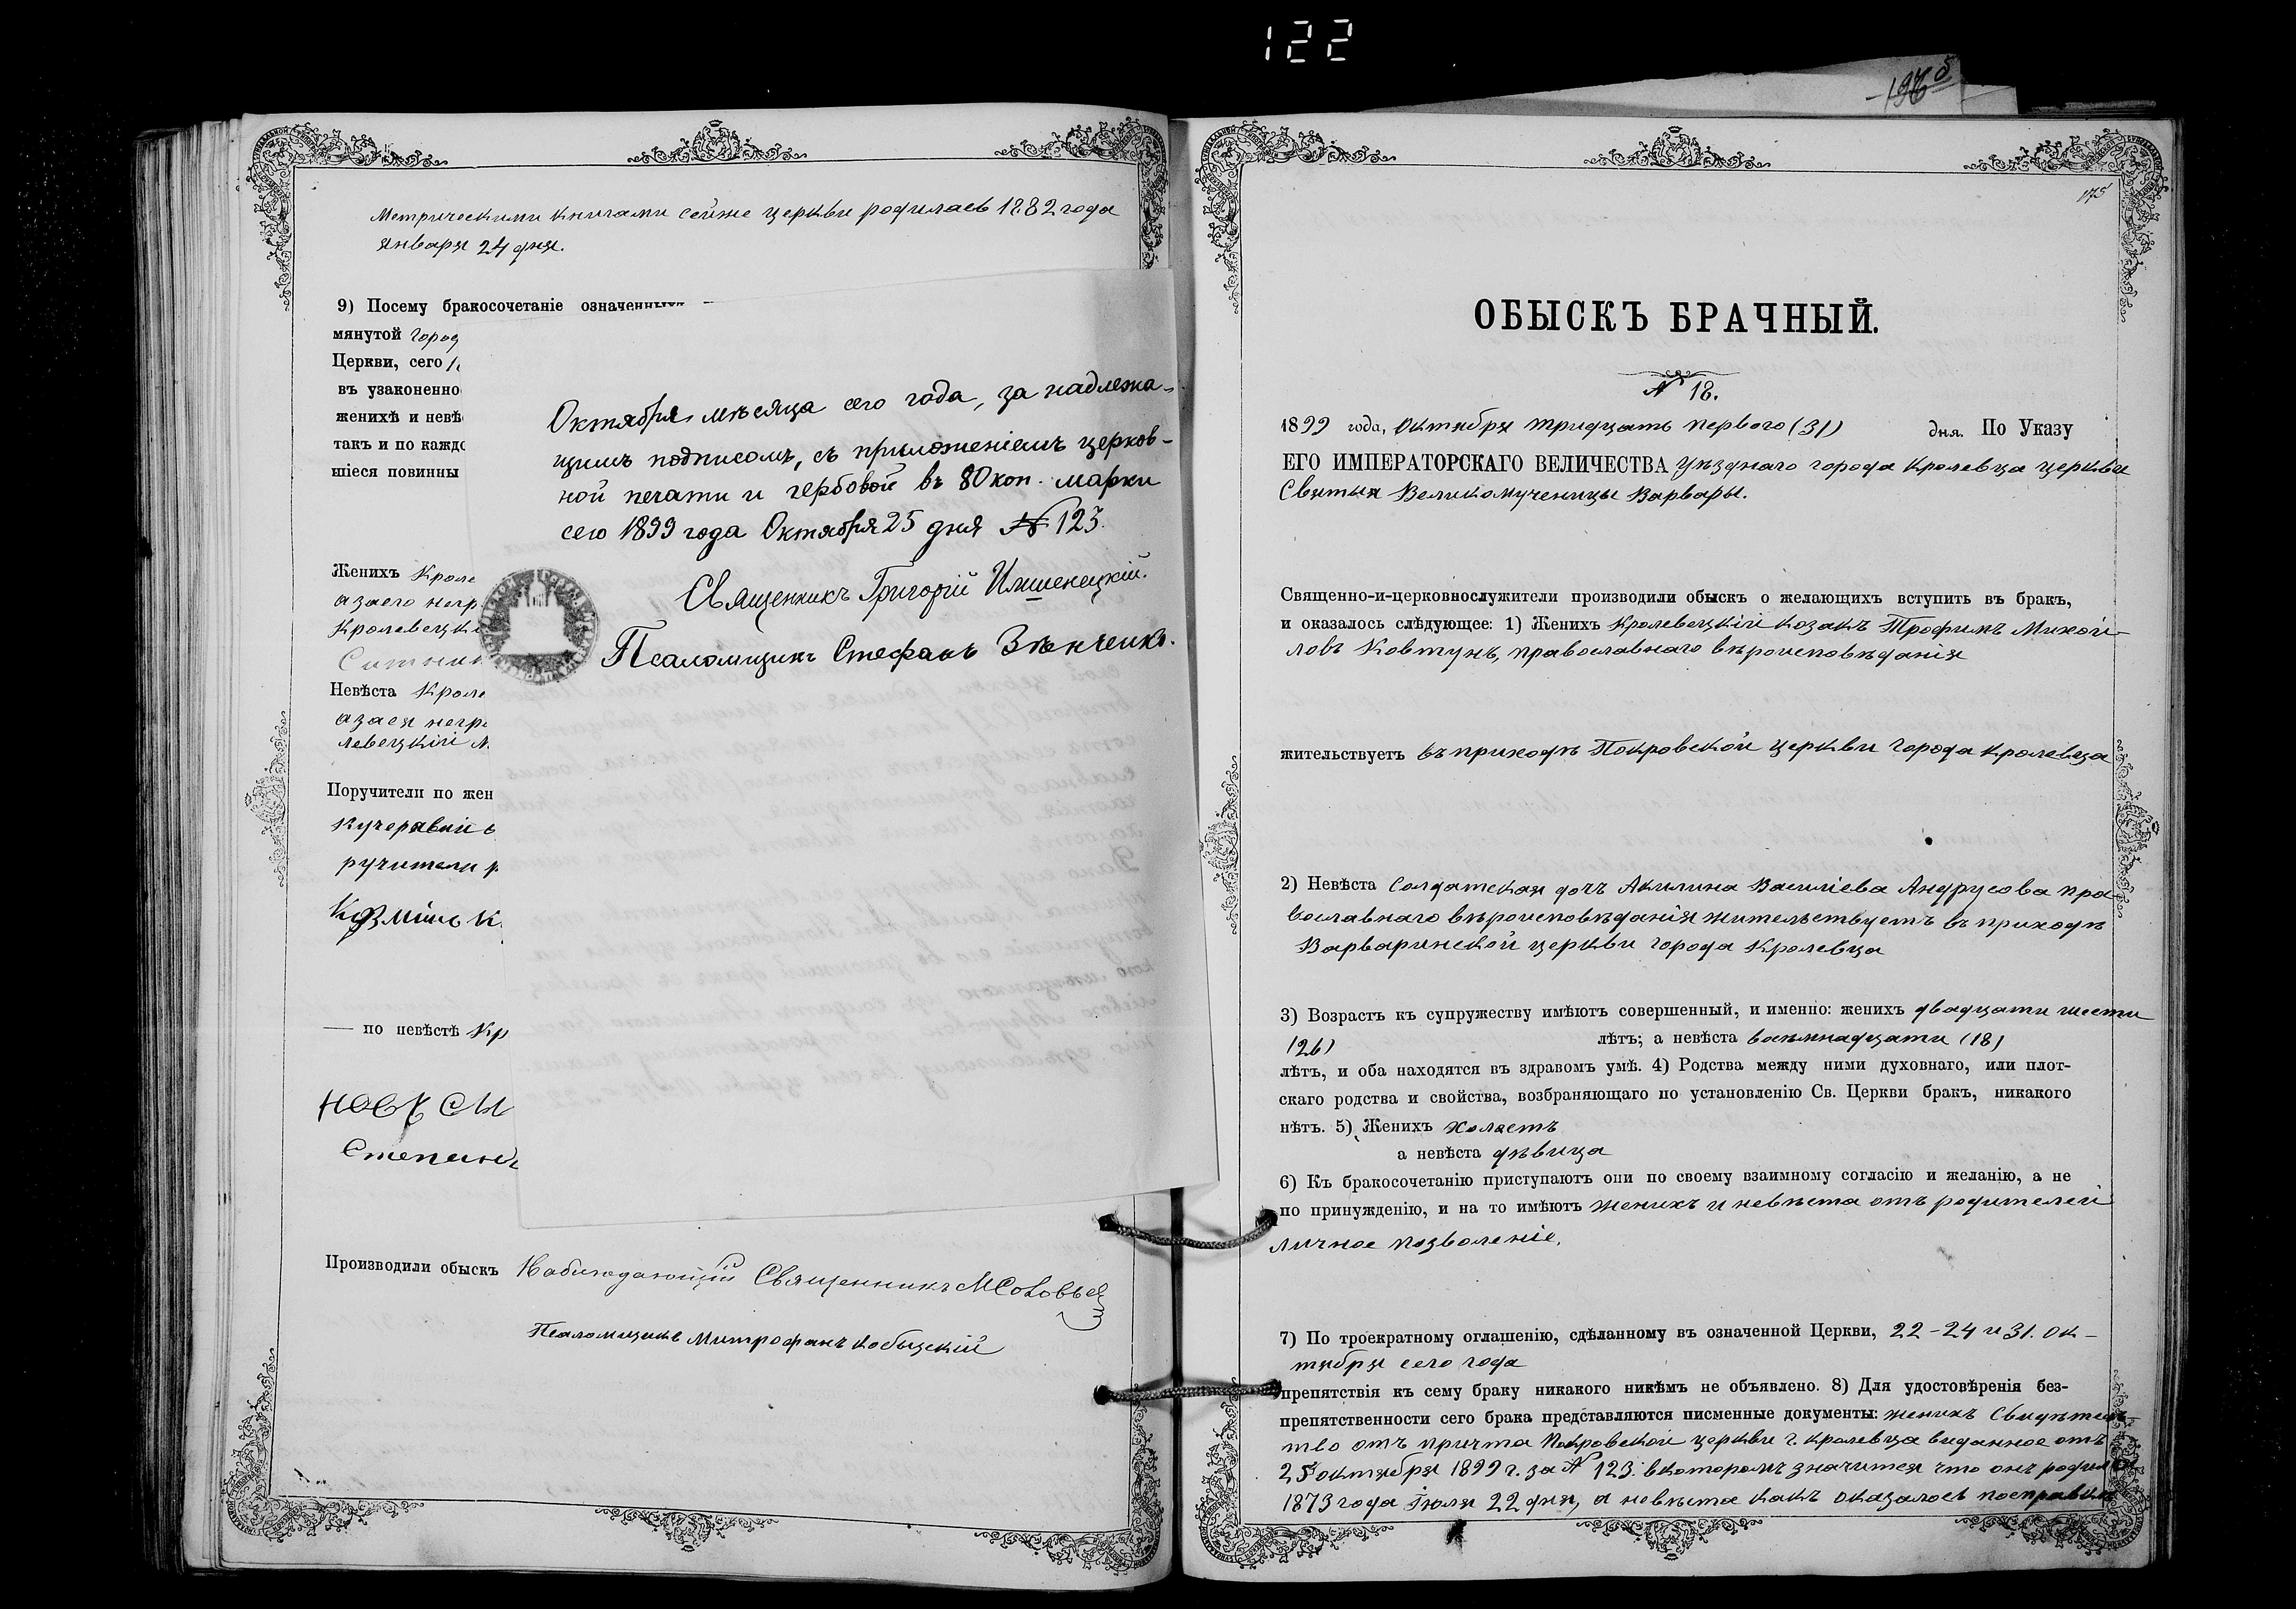 122
175
Метрическими книгами сейже церкви родилась 1882 года
января 24 дня.
9) Посему бракосочетаніе означенныхъ
мянутой город
Церкви, сего
въ узаконенно
женихѣ и невѣ
такъ и по каждо
шіеся повинны
Женихъ Кроле
азаего негр
Кролевецк
Ситник
Невѣста Кроле
азаея негр
левецкій м.
Поручители по жен
Кучерявый
ручители
Козміи К
по невѣстѣ Кр
Степанъ
Октября мѣсяца сего года, за надлежа-
щимъ подписомъ, съ приложеніемъ церков-
ной печати и гербовой въ 80 коп. марки
сего 1899 года Октября 25 дня № 123.
Священникъ Григорій Имшенецкій.
Псаломщикъ Стефанъ Зѣнченко.
Производили обыскъ Наблюдающій Священникъ М Соловьевъ
Псаломщикъ Митрофанъ Кобыцкій
ОБЫСКЪ БРАЧНЫЙ.
№ 18.
1899 года, Октября тридцать перваго (31) дня. По Указу
ЕГО ИМПЕРАТОРСКАГО ВЕЛИЧЕСТВА уѣзднаго города Кролевца церкви
Святыя Великомученицы Варвары.
Священно-и-церковнослужители производили обыскъ о желающихъ вступить въ бракъ,
и оказалось слѣдующее: 1) Женихъ Кролевецкій козакъ Трофимъ Михай-
ловъ Ковтунъ, православнаго вѣроисповѣданія
жительствуетъ въ приходѣ Покровской церкви города Кролевца
2) Невѣста Солдатская дочь Акилина Василіева Андрусова пра
вославнаго вѣроисповѣданія жительствуетъ въ приходѣ
Варваринской церкви города Кролевца
3) Возрастъ къ супружеству имѣютъ совершенный, и именно: женихъ двадцати шести
(26) лѣтъ; а невѣста восемнадцати (18)
лѣтъ, и оба находятся въ здравомъ умѣ. 4) Родства между ними духовнаго, или плот-
скаго родства и свойства, возбраняющаго по установленію Св. Церкви бракъ, никакого
нѣтъ. 5) Женихъ холостъ
а невѣста дѣвица
6) Къ бракосочетанію приступаютъ они по своему взаимному согласію и желанію, а не
по принужденію, и на то имѣютъ женихъ и невѣста отъ родителей
личное позволеніе.
7) По троекратному оглашенію, сдѣланному въ означенной Церкви, 22-24 и 31. ок-
тября сего года
препятствія къ сему браку никакого никѣмъ не объявлено. 8) Для удостовѣренія без-
препятственности сего брака представляются писменные документы: женихъ Свидѣтель-
тво отъ причта Покровской церкви г. Кролевца виданное отъ
25 октября 1899 г. за № 123. вкоторомъ значится что онъ родился
1873 года Іюля 22 дня, а невѣста какъ оказалось посправкѣ